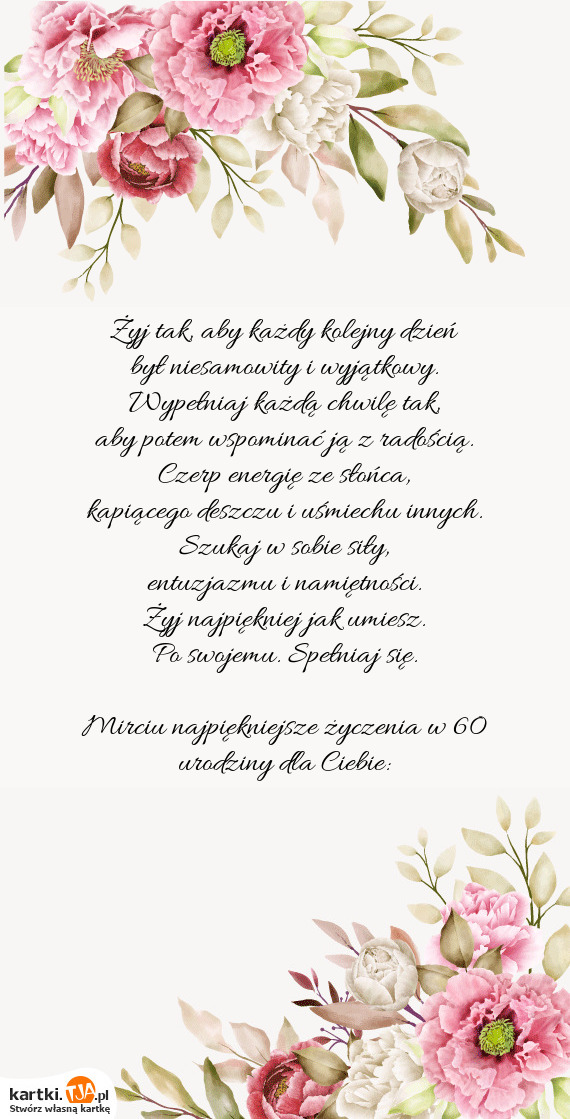 Żyj tak, aby każdy kolejny dzień
był niesamowity i wyjątkowy.
Wypełniaj każdą chwilę tak,
aby potem wspominać ją z radością.
Czerp energię ze słońca,
kapiącego deszczu i uśmiechu innych.
Szukaj w sobie siły,
entuzjazmu i namiętności.
Żyj najpiękniej jak umiesz.
Po swojemu. Spełniaj się.
Mirciu najpiękniejsze życzenia w 60
urodziny dla Ciebie:
kartki.TJA.pl
Stwórz własną kartkę